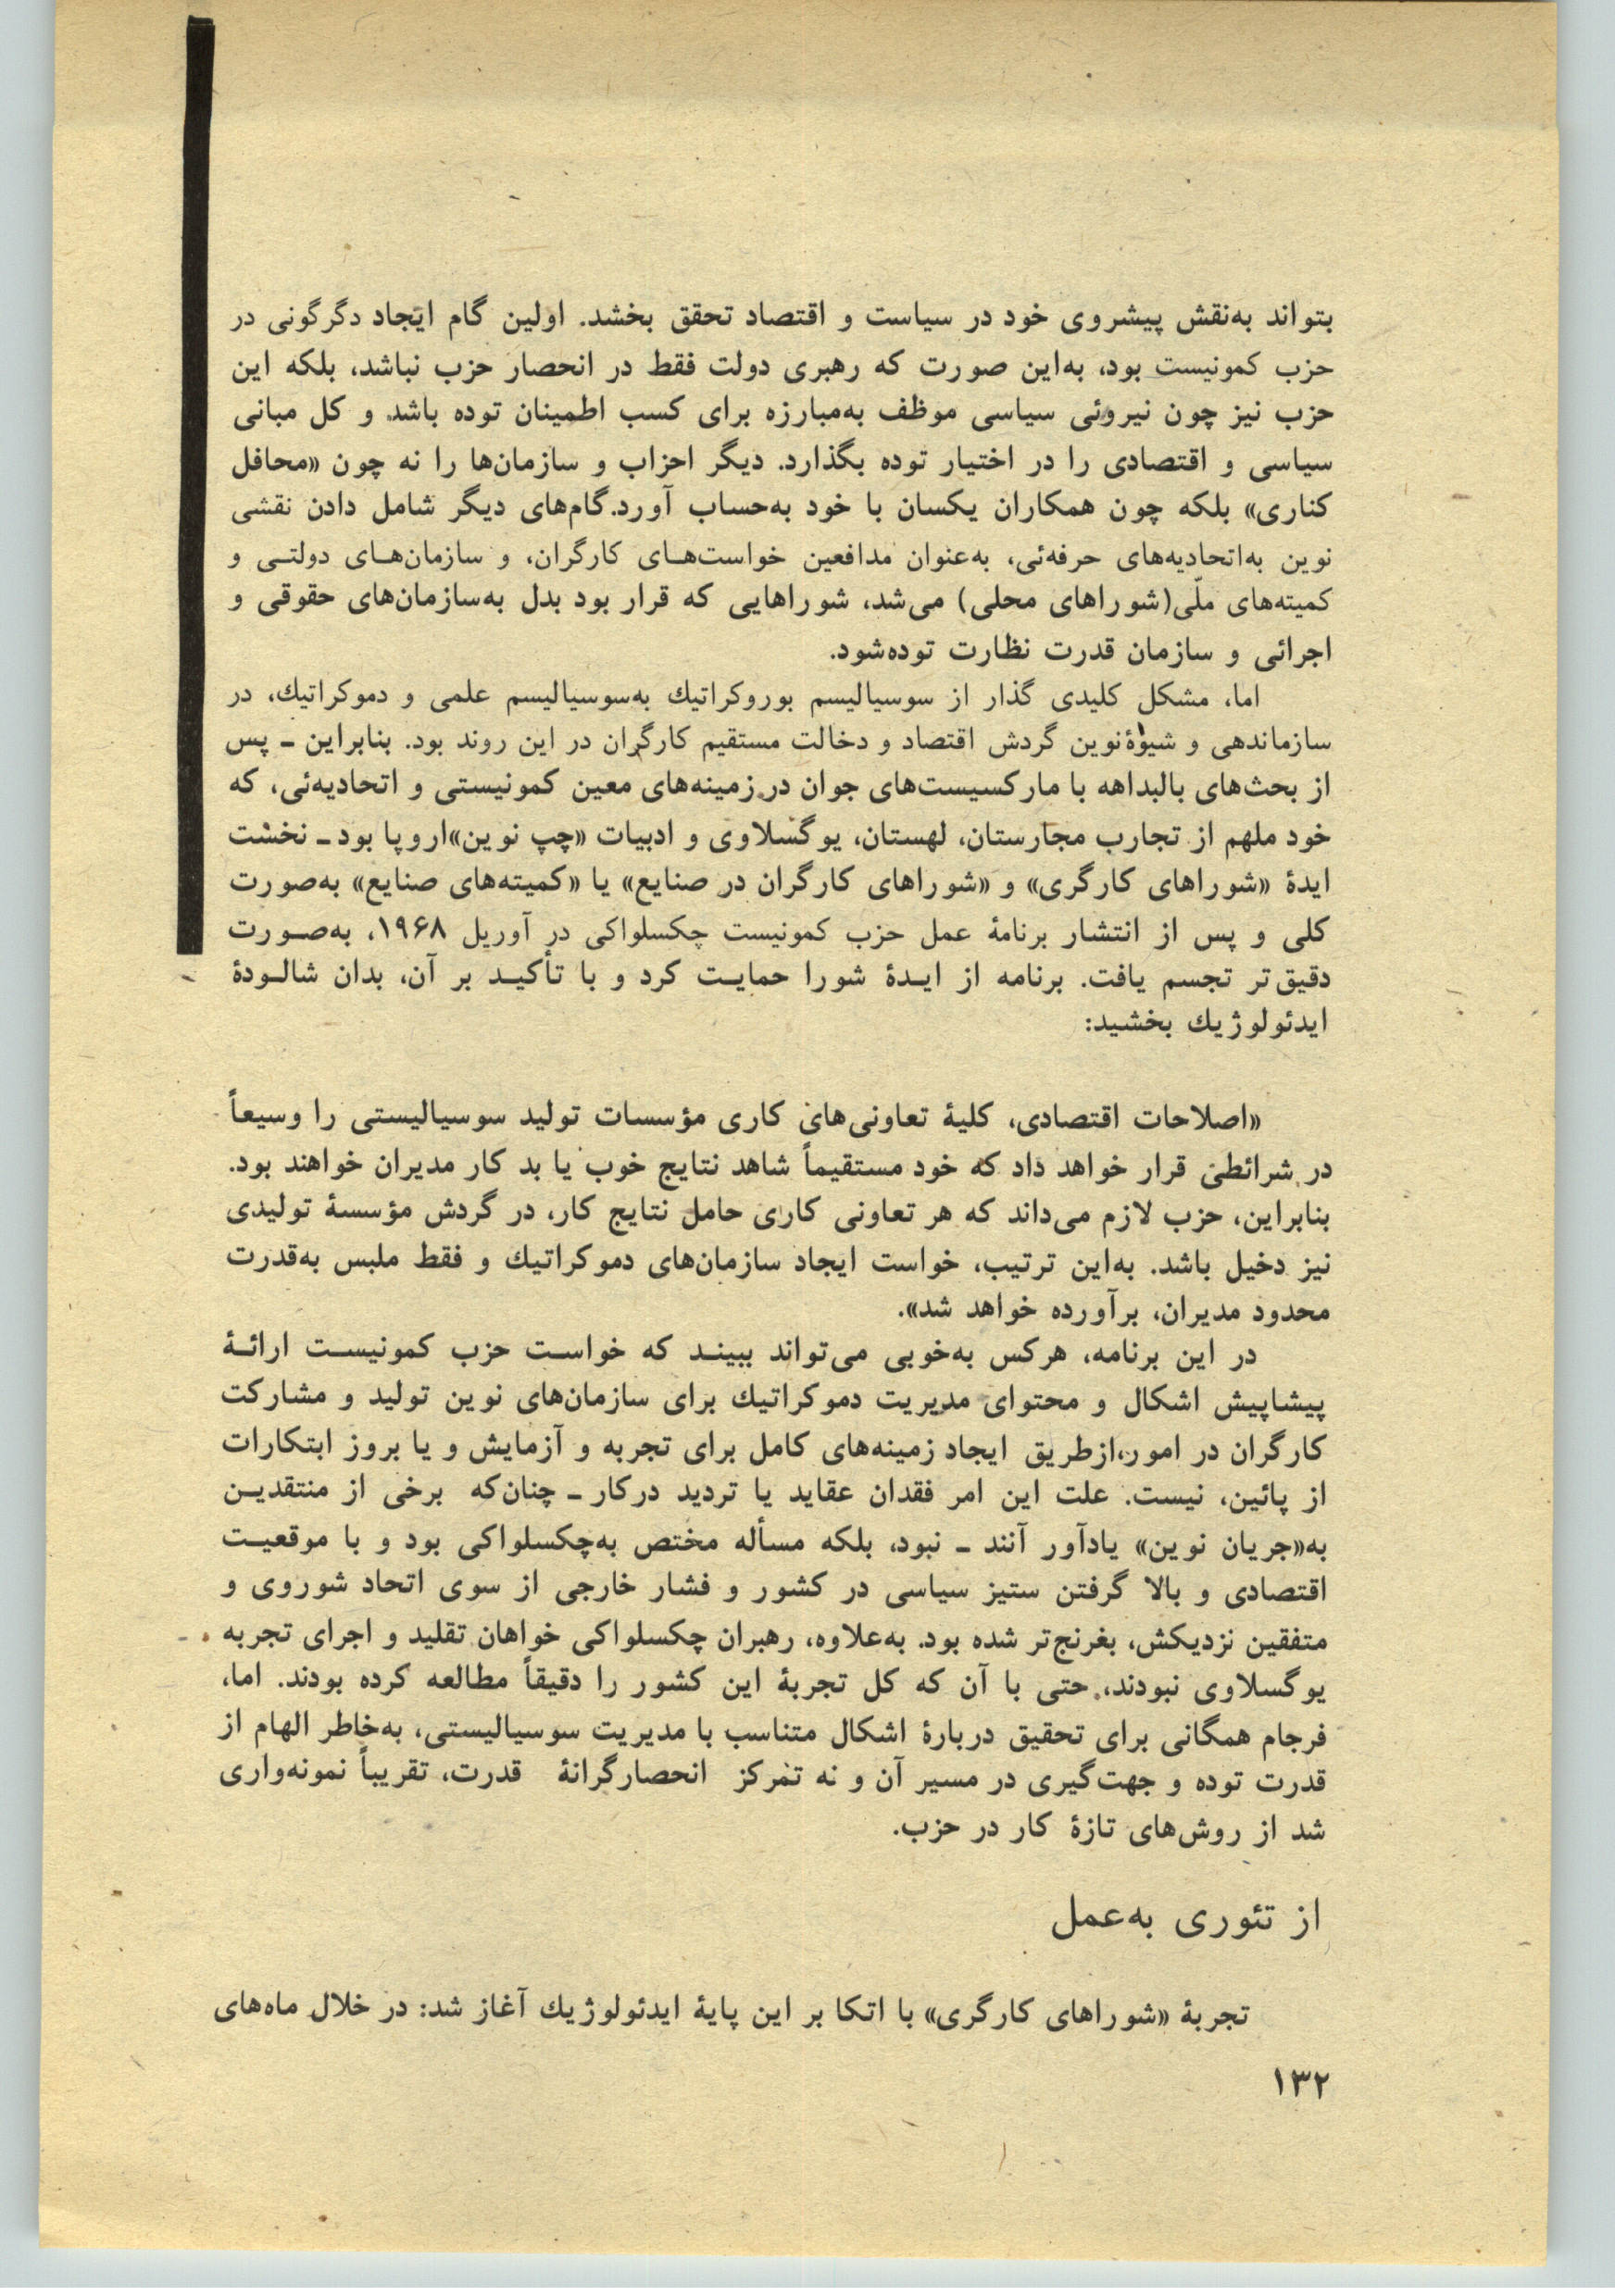 بتواند به‌نقش پیشروی خود در سیاست و اقتصاد تحقق بخشد. اولین گام ایجاد دگرگونی در
حزب کمونیست بود، به‌این صورت که رهبری دولت فقط در انحصار حزب نباشد، بلکه این
حزب نیز چون نیروئی سیاسی موظف به‌مبارزه برای کسب اطمینان توده باشد و کل مبانی
سیاسی و اقتصادی را در اختیار توده بگذارد. دیگر احزاب و سازمان‌ها را نه چون «محافل
کناری» بلکه چون همکاران یکسان با خود به‌حساب آورد. گام‌های دیگر شامل دادن نقشی
نوین به‌اتحادیه‌های حرفه‌ئی، به‌عنوان مدافعین خواست‌هـای کارگران، و سازمان‌هـای دولتـی و
کمیته‌های ملّی(شوراهای محلی) می‌شد، شوراهایی که قرار بود بدل به‌سازمان‌های حقوقی و
اجرائی و سازمان قدرت نظارت توده‌شود.
اما، مشکل کلیدی گذار از سوسیالیسم بوروکراتیك به‌سوسیالیسم علمی و دموکراتیك، در
سازماندهی و شیوۀ‌نوین گردش اقتصاد و دخالت مستقیم کارگران در این روند بود. بنابراین ـ پس
از بحث‌های بالبداهه با مارکسیست‌های جوان در زمینه‌های معین کمونیستی و اتحادیه‌ئی، که
خود ملهم از تجارب مجارستان، لهستان، یوگسلاوی و ادبیات «چپ نوین»اروپا بود ـ نخست
ایدۀ «شوراهای کارگری» و «شوراهای کارگران در صنایع» یا «کمیته‌های صنایع» به‌صورت
کلی و پس از انتشار برنامۀ عمل حزب کمونیست چکسلواکی در آوریل ۱۹۶۸، به‌صـورت
دقیق‌تر تجسم یافت. برنامه از ایـدۀ شورا حمایـت کرد و با تأکیـد بر آن، بدان شالـودۀ
ایدئولوژیك بخشید:
«اصلاحات اقتصادی، کلیۀ تعاونی‌های کاری مؤسسات تولید سوسیالیستی را وسیعاً
در شرائطی قرار خواهد داد که خود مستقیماً شاهد نتایج خوب یا بد کار مدیران خواهند بود.
بنابراین، حزب لازم می‌داند که هر تعاونی کاری حامل نتایج کار، در گردش مؤسسۀ تولیدی
نیز دخیل باشد. به‌این ترتیب، خواست ایجاد سازمان‌های دموکراتیك و فقط ملبس به‌قدرت
محدود مدیران، برآورده خواهد شد».
در این برنامه، هرکس به‌خوبی می‌تواند ببینـد که خواسـت حزب کمونیسـت ارائـۀ
پیشاپیش اشکال و محتوای مدیریت دموکراتیك برای سازمان‌های نوین تولید و مشارکت
کارگران در امور،ازطریق ایجاد زمینه‌های کامل برای تجربه و آزمایش و یا بروز ابتکارات
از پائین، نیست. علت این امر فقدان عقاید یا تردید درکار ـ چنان‌که برخی از منتقدیـن
به«جریان نوین» یادآور آنند ـ نبود، بلکه مسأله مختص به‌چکسلواکی بود و با موقعیـت
اقتصادی و بالا گرفتن ستیز سیاسی در کشور و فشار خارجی از سوی اتحاد شوروی و
متفقین نزدیکش، بغرنج‌تر شده بود. به‌علاوه، رهبران چکسلواکی خواهان تقلید و اجرای تجربه
یوگسلاوی نبودند، حتی با آن که کل تجربۀ این کشور را دقیقاً مطالعه کرده بودند. اما،
فرجام همگانی برای تحقیق دربارۀ اشکال متناسب با مدیریت سوسیالیستی، به‌خاطر الهام از
قدرت توده و جهت‌گیری در مسیر آن و نه تمرکز انحصارگرانۀ قدرت، تقریباً نمونه‌واری
شد از روش‌های تازۀ کار در حزب.
از تئوری به‌عمل
تجربۀ «شوراهای کارگری» با اتکا بر این پایۀ ایدئولوژیك آغاز شد: در خلال ماه‌های
۱۳۲